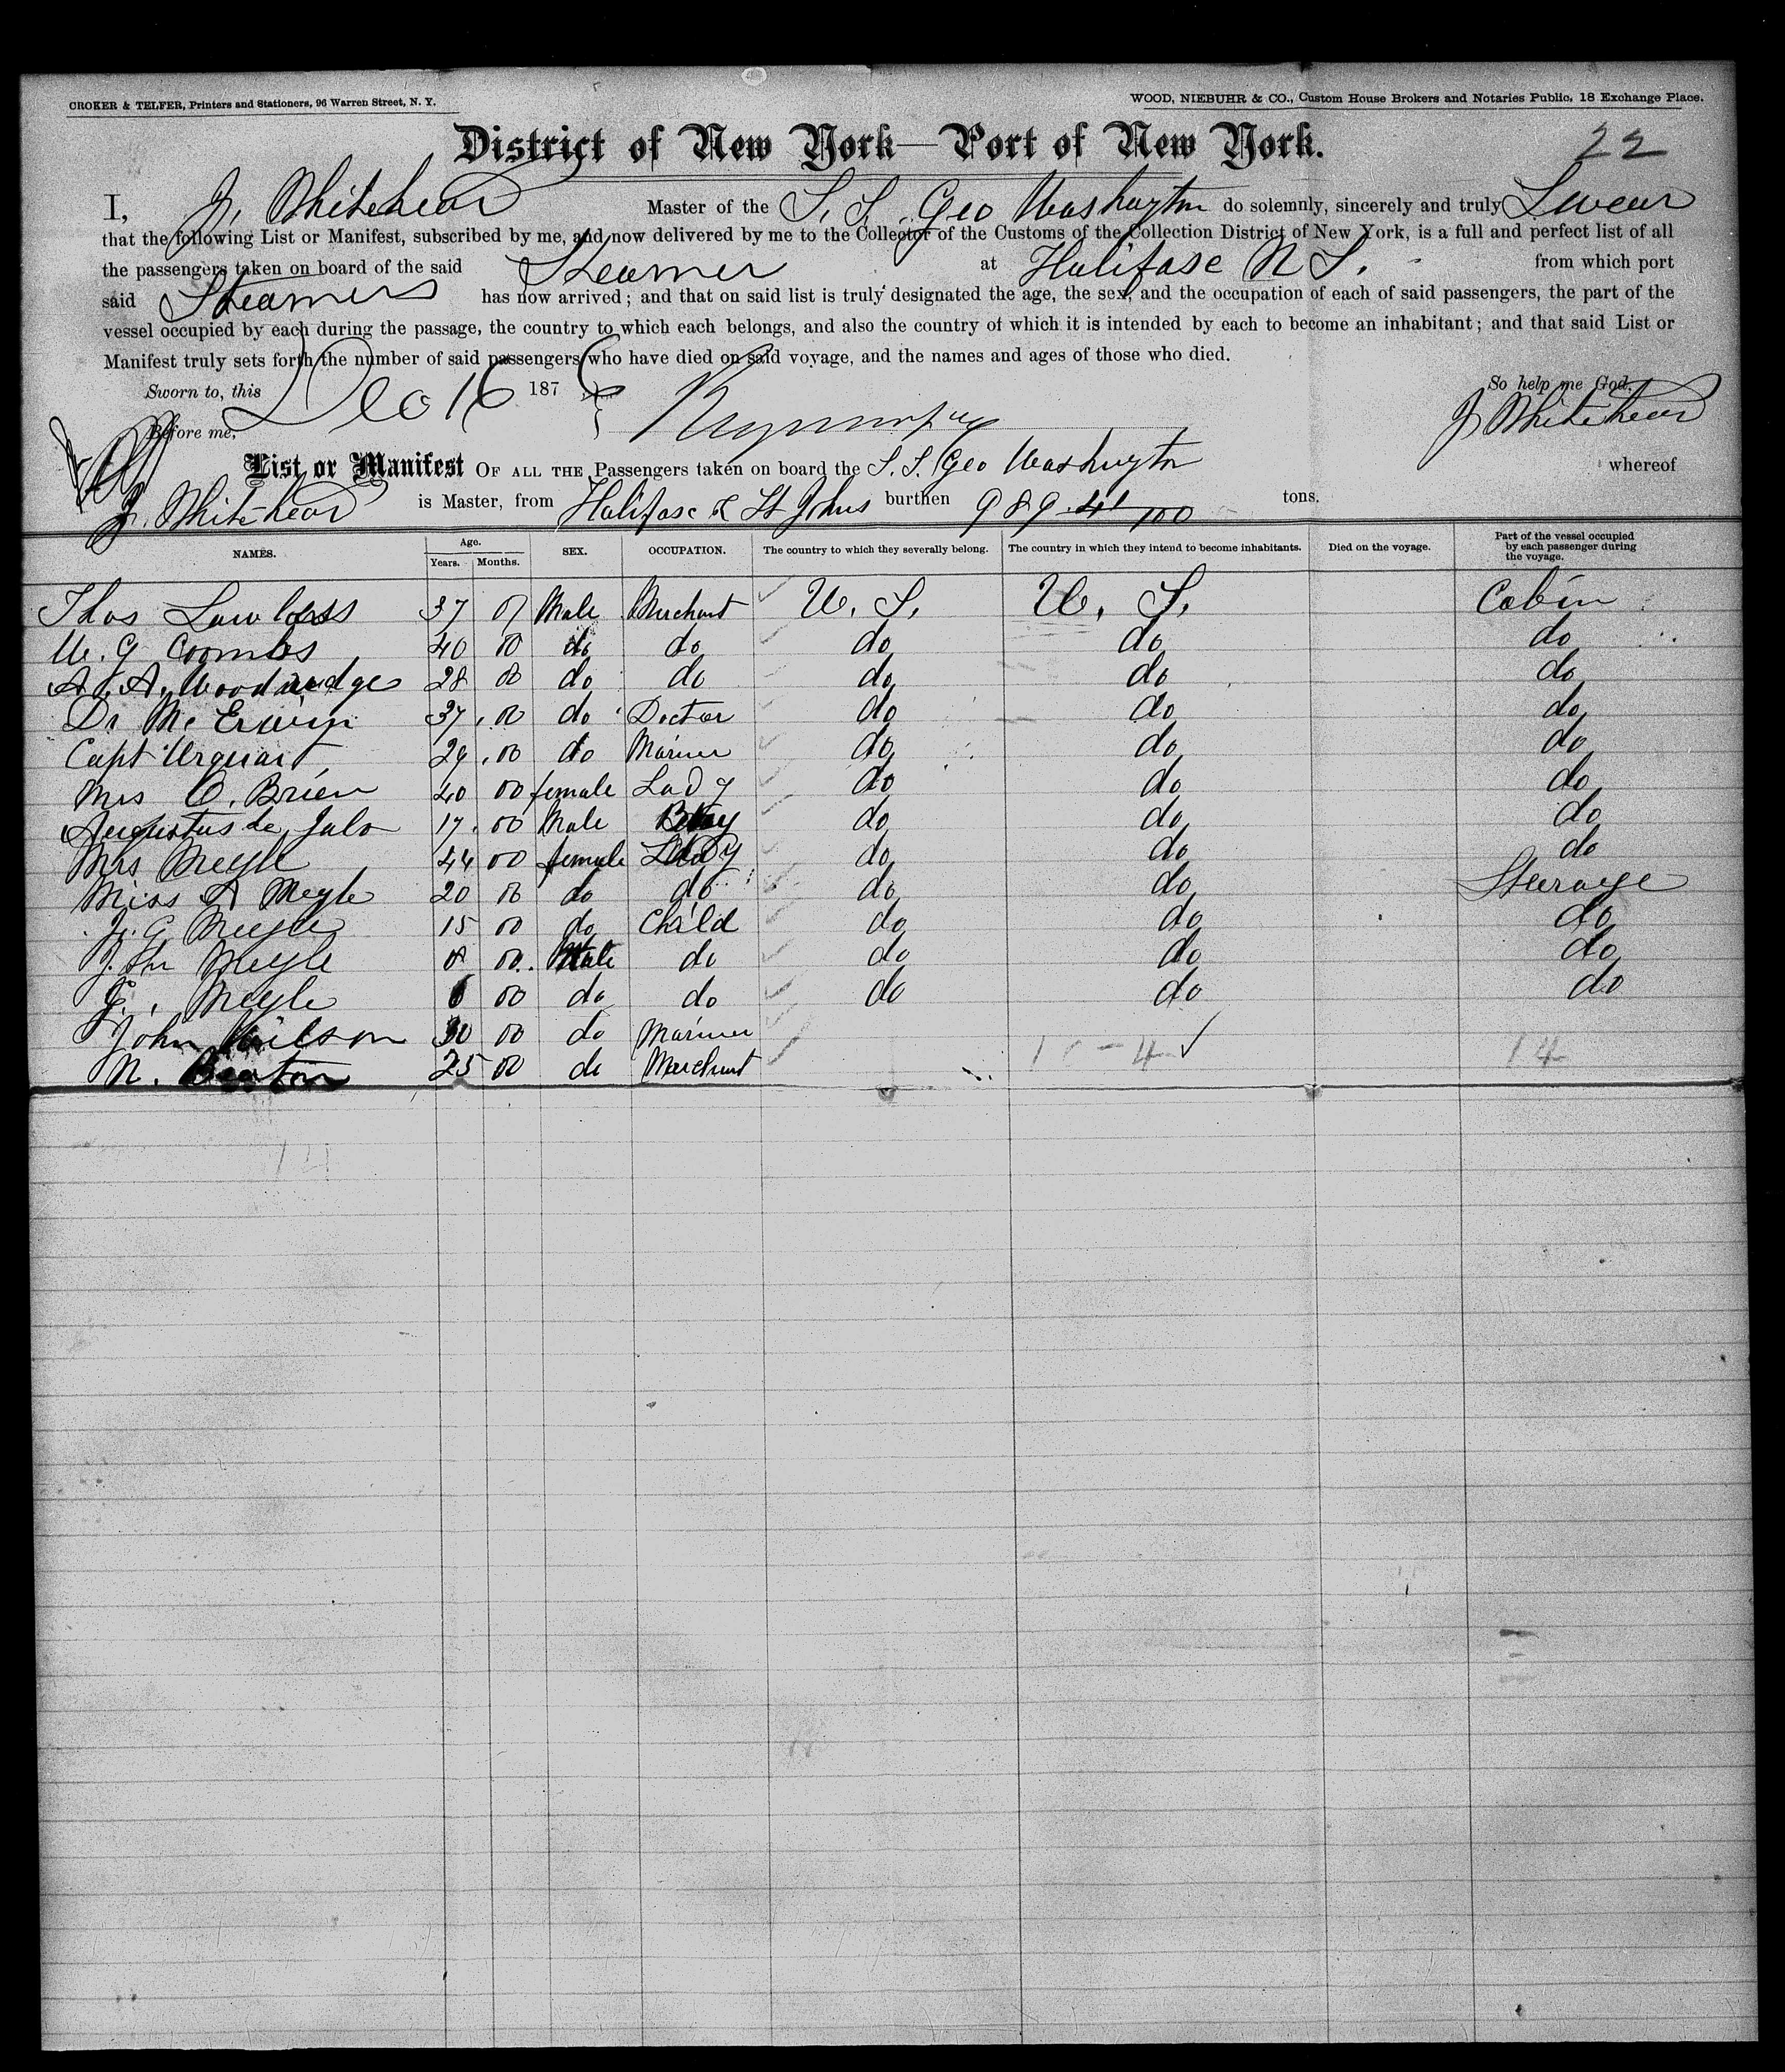 CROKER & TELFER, Printers and Stationers, 96 Warren Street, N. Y.
WOOD, NIEBUHR & CO., Custom House Brokers and Notaries Public, 18 Exchange Place.
District of New York—Port of New York.
22
I, J. Whitehear Master of the S. S. Geo Washington do solemnly, sincerely and truly Swear
that the following List or Manifest, subscribed by me, and now delivered by me to the Collector of the Customs of the Collection District of New York, is a full and perfect list of all
the passengers taken on board of the said Steamer at Halifax N S. from which port
said Steamers has now arrived; and that on said list is truly designated the age, the sex, and the occupation of each of said passengers, the part of the
vessel occupied by each during the passage, the country to which each belongs, and also the country of which it is intended by each to become an inhabitant; and that said List or
Manifest truly sets forth the number of said passengers who have died on said voyage, and the names and ages of those who died.
Sworn to, this Dec 16 1876 So help me God,
Before me, J Whitehear
List or Manifest OF ALL THE Passengers taken on board the S. S. Geo Washington whereof
J. Whitehear is Master, from Halifax & St Johns burthen 989 41/100 tons.
NAMES. Age. Years. Months. SEX. OCCUPATION. The country to which they severally belong. The country in which they intend to become inhabitants. Died on the voyage. Part of the vessel occupied by each passenger during the voyage.
Thos Lawless 37 Male Merchant U. S. U. S. Cabin
W. G Coombs 40 00 do do do do do
A. A. 28 00 do do do do do
Dr Mc 37 00 do Doctor do do do
Capt Urquart 29 00 do Mariner do do do
Mrs O. Brien 40 00 female Lady do do do
Augustus de 17 00 Male Boy do do do
Mrs Meyle 44 00 female Lady do do do
Miss A Meyle 20 00 do do do do Sterage
J. G Meyle 15 00 do Child do do do
Meyle 8 00 Male do do do do
G. Meyle 6 00 do do do do do
John Wilson 30 00 do Mariner
N. 25 00 do Merchant 10 - 4 ✓ 14
14